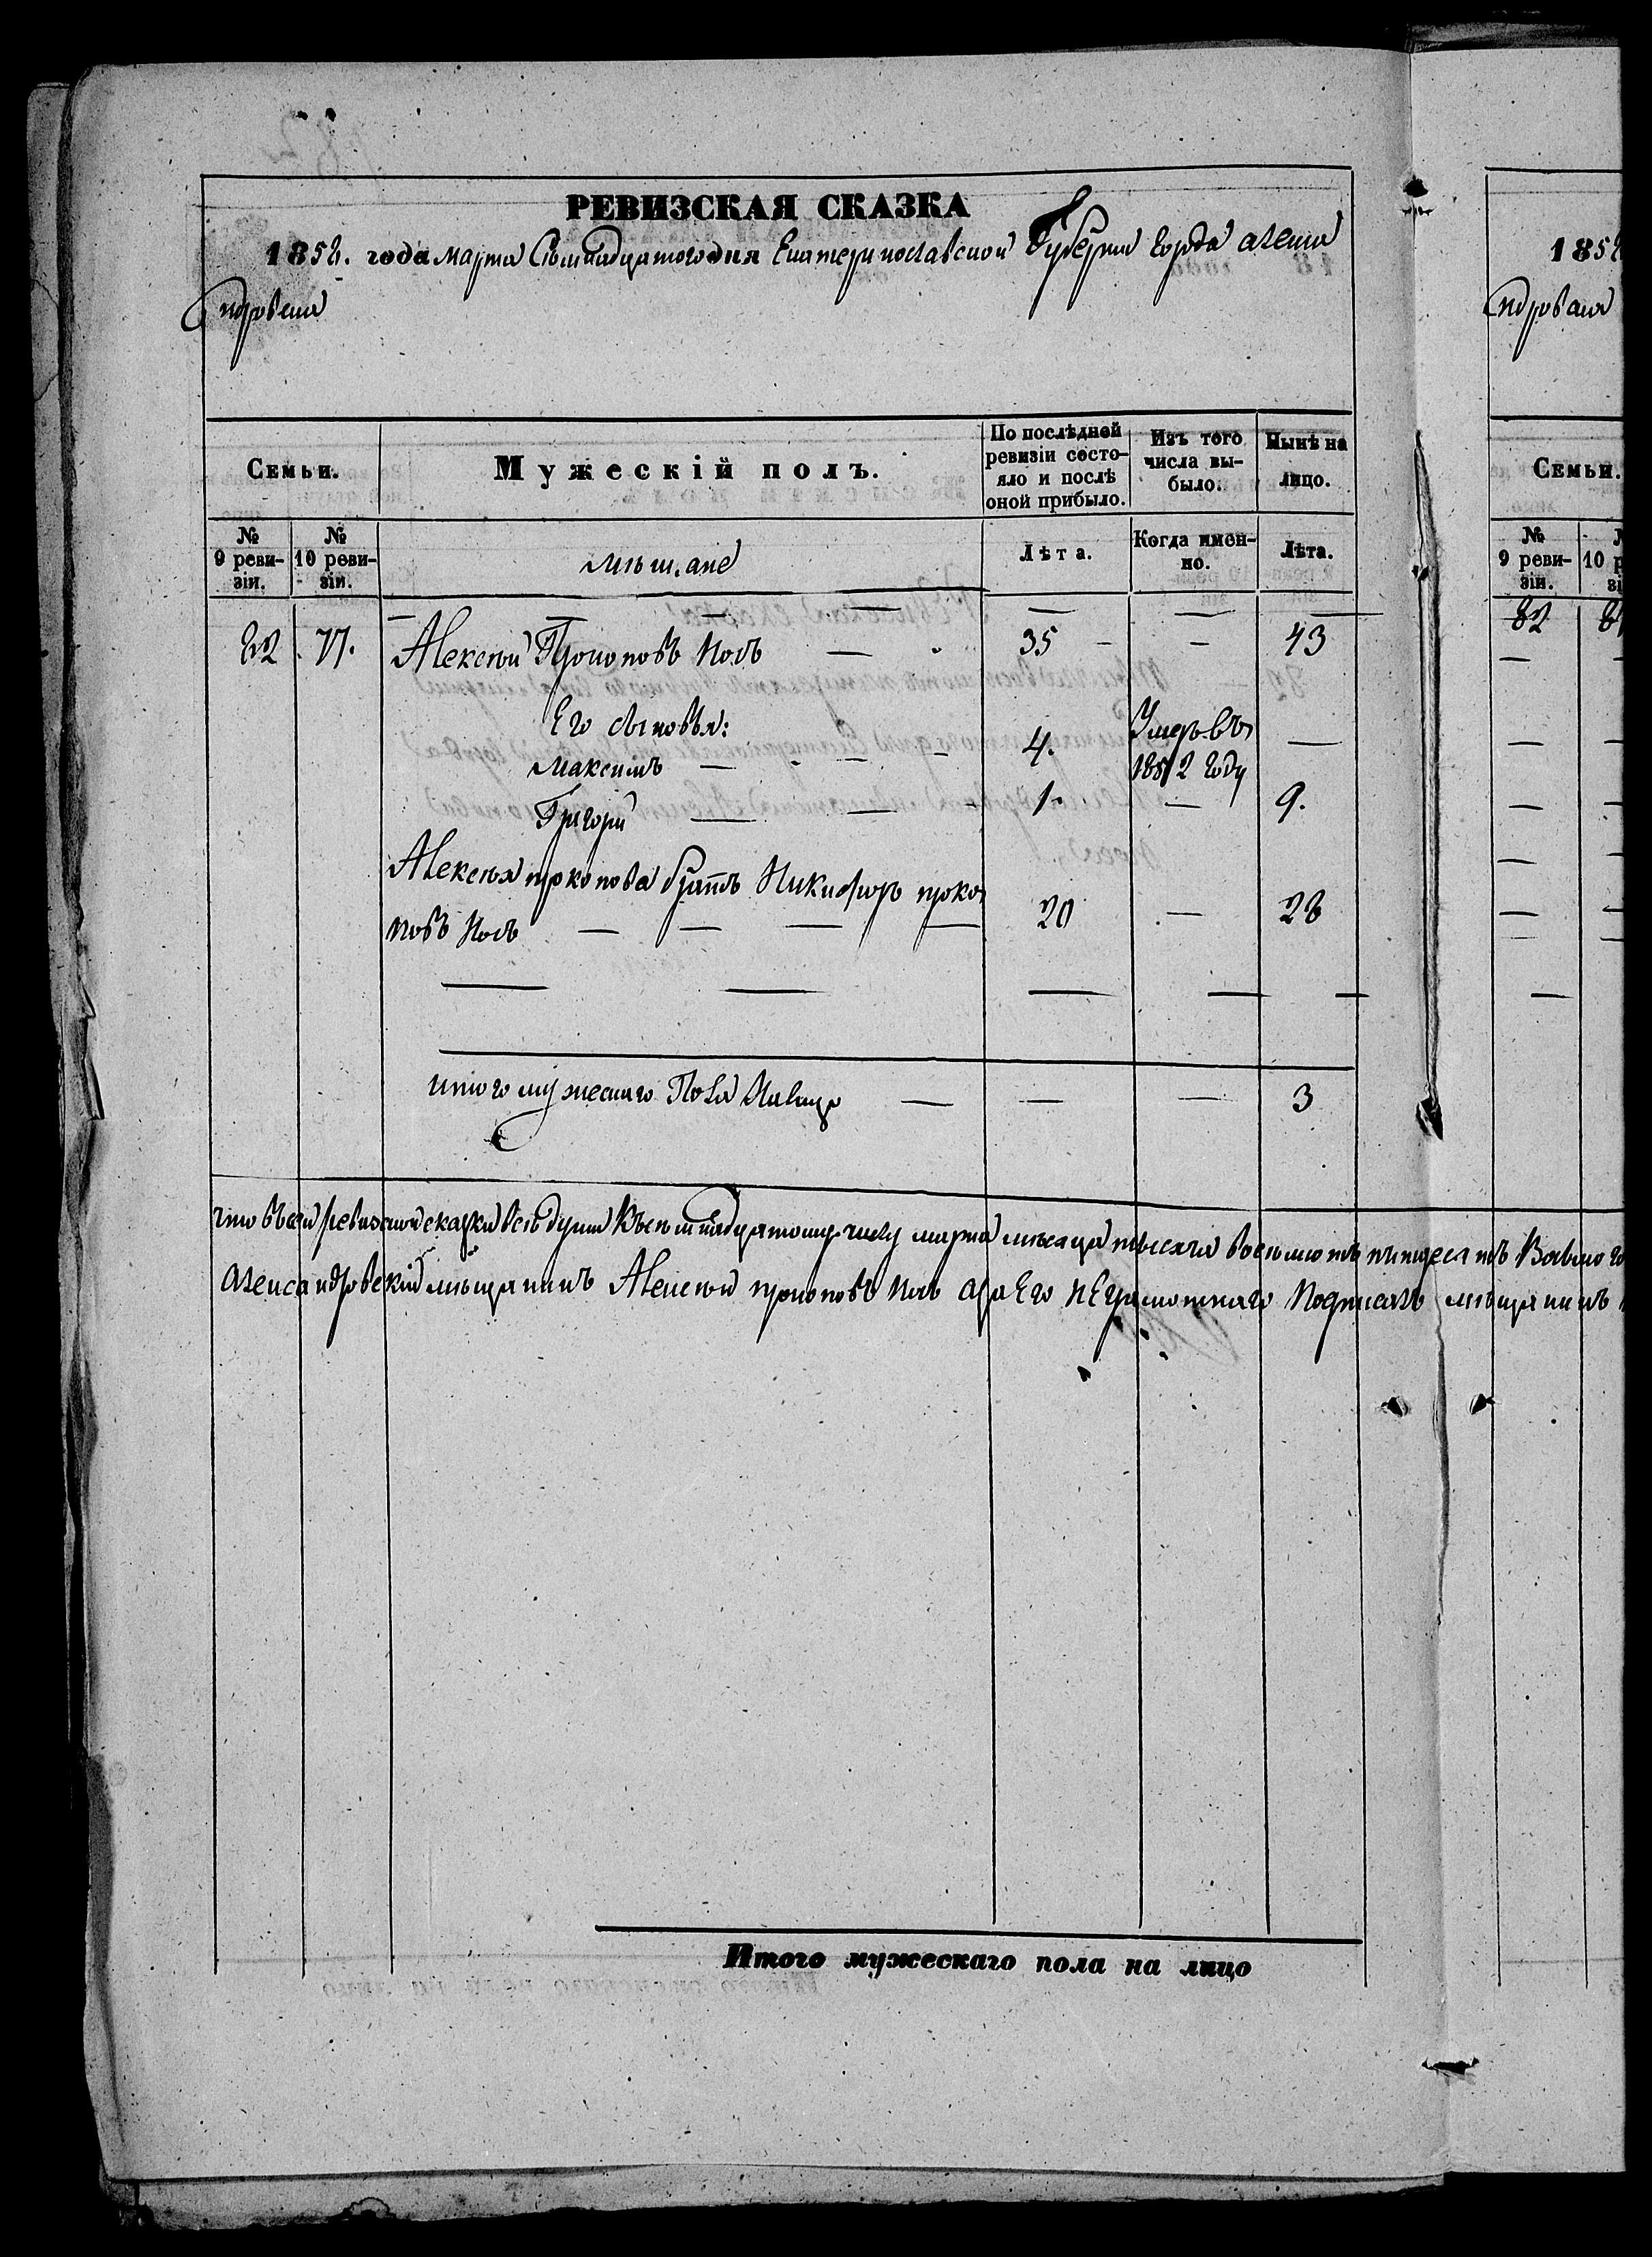 РЕВИЗСКАЯ СКАЗКА
1858. года марта Семнадцатого дня Екатеринославской Губерніи города алекса
ндровска
Семьи.
Мужескій полъ.
По послѣдней ревизіи состо-
яло и послѣ
оной прибыло.
Изъ того
числа вы-
было.
Нынѣ на
лицо.
№
9 реви-
зіи.
№
10 реви-
зіи.
мѣщане
Лѣта.
Когда имен-
но.
Лѣта.
77. Алексѣй Прокоповъ 35 — — 43
Его сыновья:
Максимъ — 4. Умеръ въ 1852 году —
Григорій — 1. — 9.
Алексѣя прокопова братъ Никифоръ проко
повъ 20 — 28
итого мужескаго Пола Налицо — — — 3
что въ сей ревизской сказки всѣ души Къ семнадцатому числу марта мѣсяца тысяча восемьсотъ пятдесятъ
александровскій мѣщанинъ Алексѣй прокоповъ а за Его неграмотнаго Подписалъ мѣщанинъ
Итого мужескаго пола на лицо
185
ндровска
Семьи.
№
9 реви-
зіи.
10
82